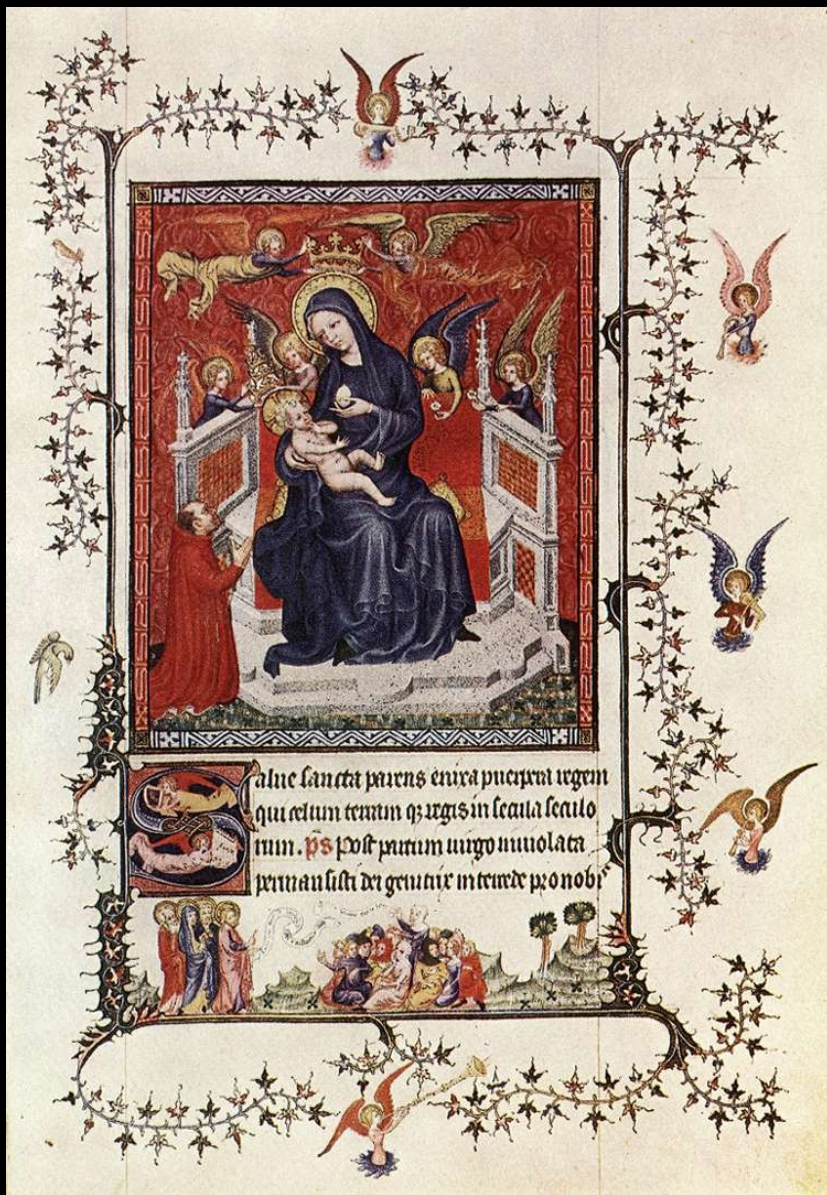 Salue sancta parens enixa puerpera regem
qui celum terram qȝ regis in secula seculo
rum. ps Post partum uirgo inuiolata
permansisti dei genitrix intercede pro nobis